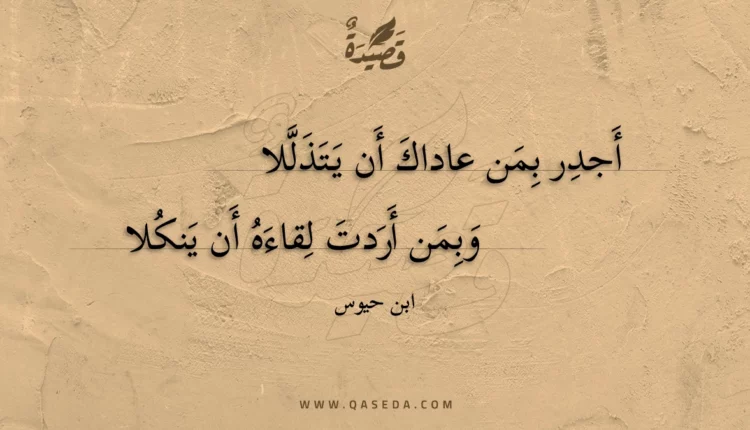 قَصِيْدَةٌ
أَجدِر بِمَن عاداكَ أَن يَتَذَلَّلا
وَبِمَن أَرَدتَ لِقاءَهُ أَن يَنكُلا
ابن حيوس
WWW.QASEDA.COM